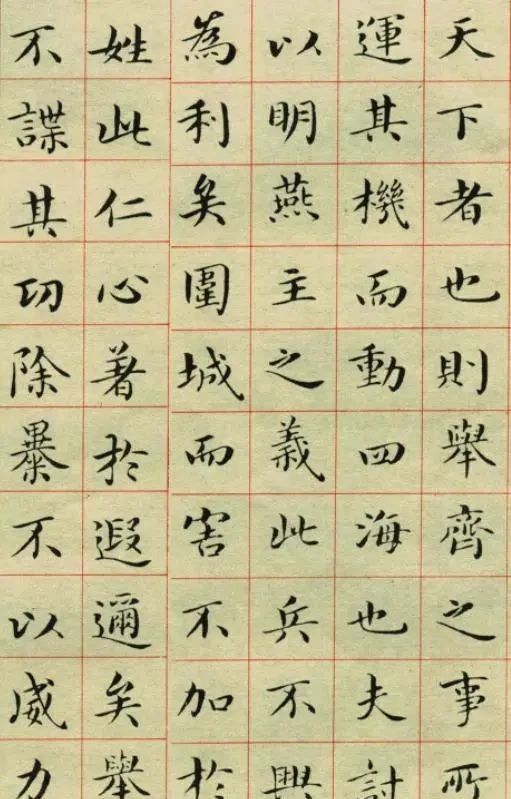 天下者也則舉齊之事所
運其機而動四海也夫討
以明燕主之義此兵不興
為利矣圍城而害不加於
姓此仁心著於遐邇矣舉
不謀其功除暴不以威力